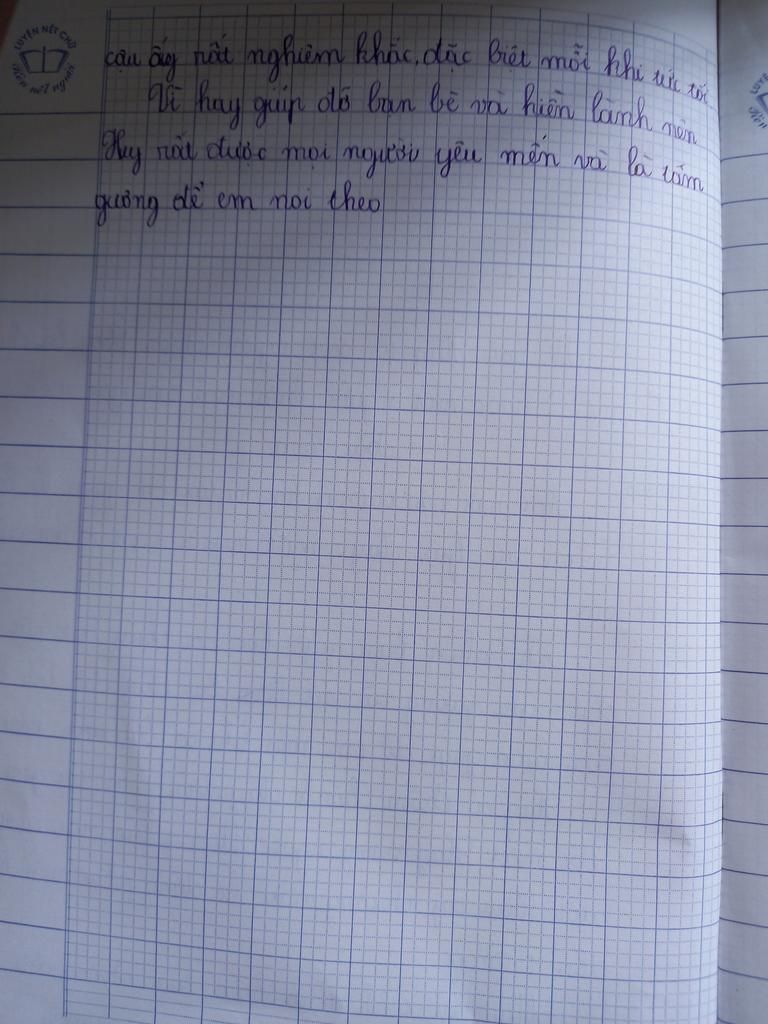 LUYỆN NÉT CHỮ
Rèn nết người
cậu ấy rất nghiêm khắc, đặc biệt mỗi khi tức tối
Vì hay giúp đỡ bạn bè và hiền lành nên
Huy rất được mọi người yêu mến và là tấm
gương để em noi theo